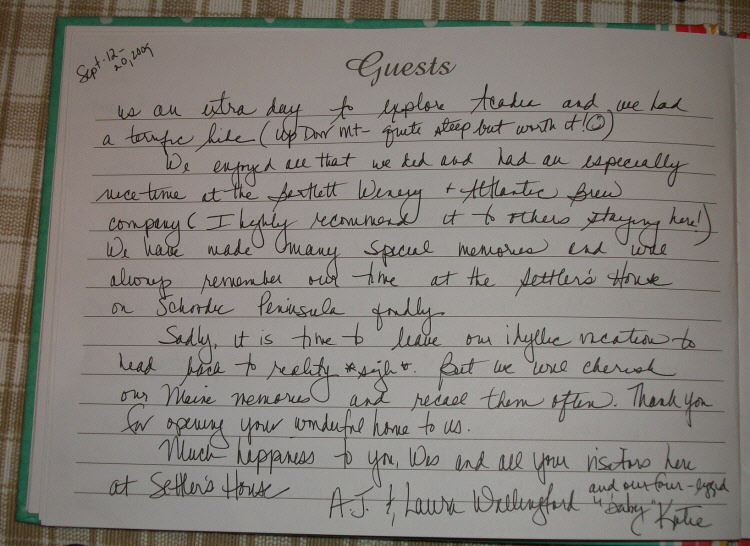 Sept. 12-
20, 2009
Guests
us an extra day to explore Acadia and we had
a terrific hike (Up Dorr Mt- quite steep but worth it! ☺)
We enjoyed all that we did and had an especially
nice time at the Bartlett Winery + Atlantic Brew
company (I highly recommend it to others staying here!)
We have made many special memories and will
always remember our time at the Settler's House
on Schoodic Peninsula fondly.
Sadly, it is time to leave our idyllic vacation to
head back to reality *sigh*. But we will cherish
our Maine memories and recall them often. Thank you
for opening your wonderful home to us.
Much happiness to you, Wes and all your visitors here
at Settler's House
A.J. &, Laura Wallingford and our four-legged
"baby" Katie